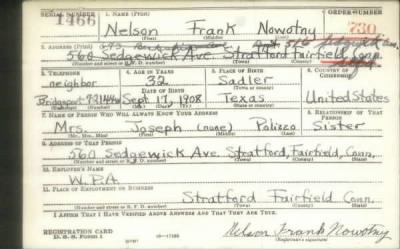 SERIAL NUMBER 1. NAME (Print) ORDER NUMBER
1466 Nelson Frank Nowotny 730
(First) (Middle) (Last)
2. ADDRESS (Print)
560 Sedgewick Ave. Stratford Fairfield Conn.
(Number and street or R. F. D. number) (Town) (County) (State)
3. TELEPHONE 4. AGE IN YEARS 5. PLACE OF BIRTH 6. COUNTRY OF CITIZENSHIP
neighbor 32 Sadler
DATE OF BIRTH (Town or county)
Bridgeport Sept 17, 1908 Texas United States
(Exchange) (Number) (Mo.) (Day) (Yr.) (State or country)
7. NAME OF PERSON WHO WILL ALWAYS KNOW YOUR ADDRESS
Mrs. Joseph (none) Palizzo Sister
(Mr., Mrs., Miss) (First) (Middle) (Last)
9. ADDRESS OF THAT PERSON
560 Sedgewick Ave. Stratford, Fairfield, Conn.
(Number and street or R. F. D. number) (Town) (County) (State)
10. EMPLOYER'S NAME
W.P.A
11. PLACE OF EMPLOYMENT OR BUSINESS
Stratford Fairfield Conn.
(Number and street or R. F. D. number) (Town) (County) (State)
I AFFIRM THAT I HAVE VERIFIED ABOVE ANSWERS AND THAT THEY ARE TRUE.
REGISTRATION CARD
D. S. S. FORM 1 Nelson Frank Nowotny
(over) (Registrant's signature)